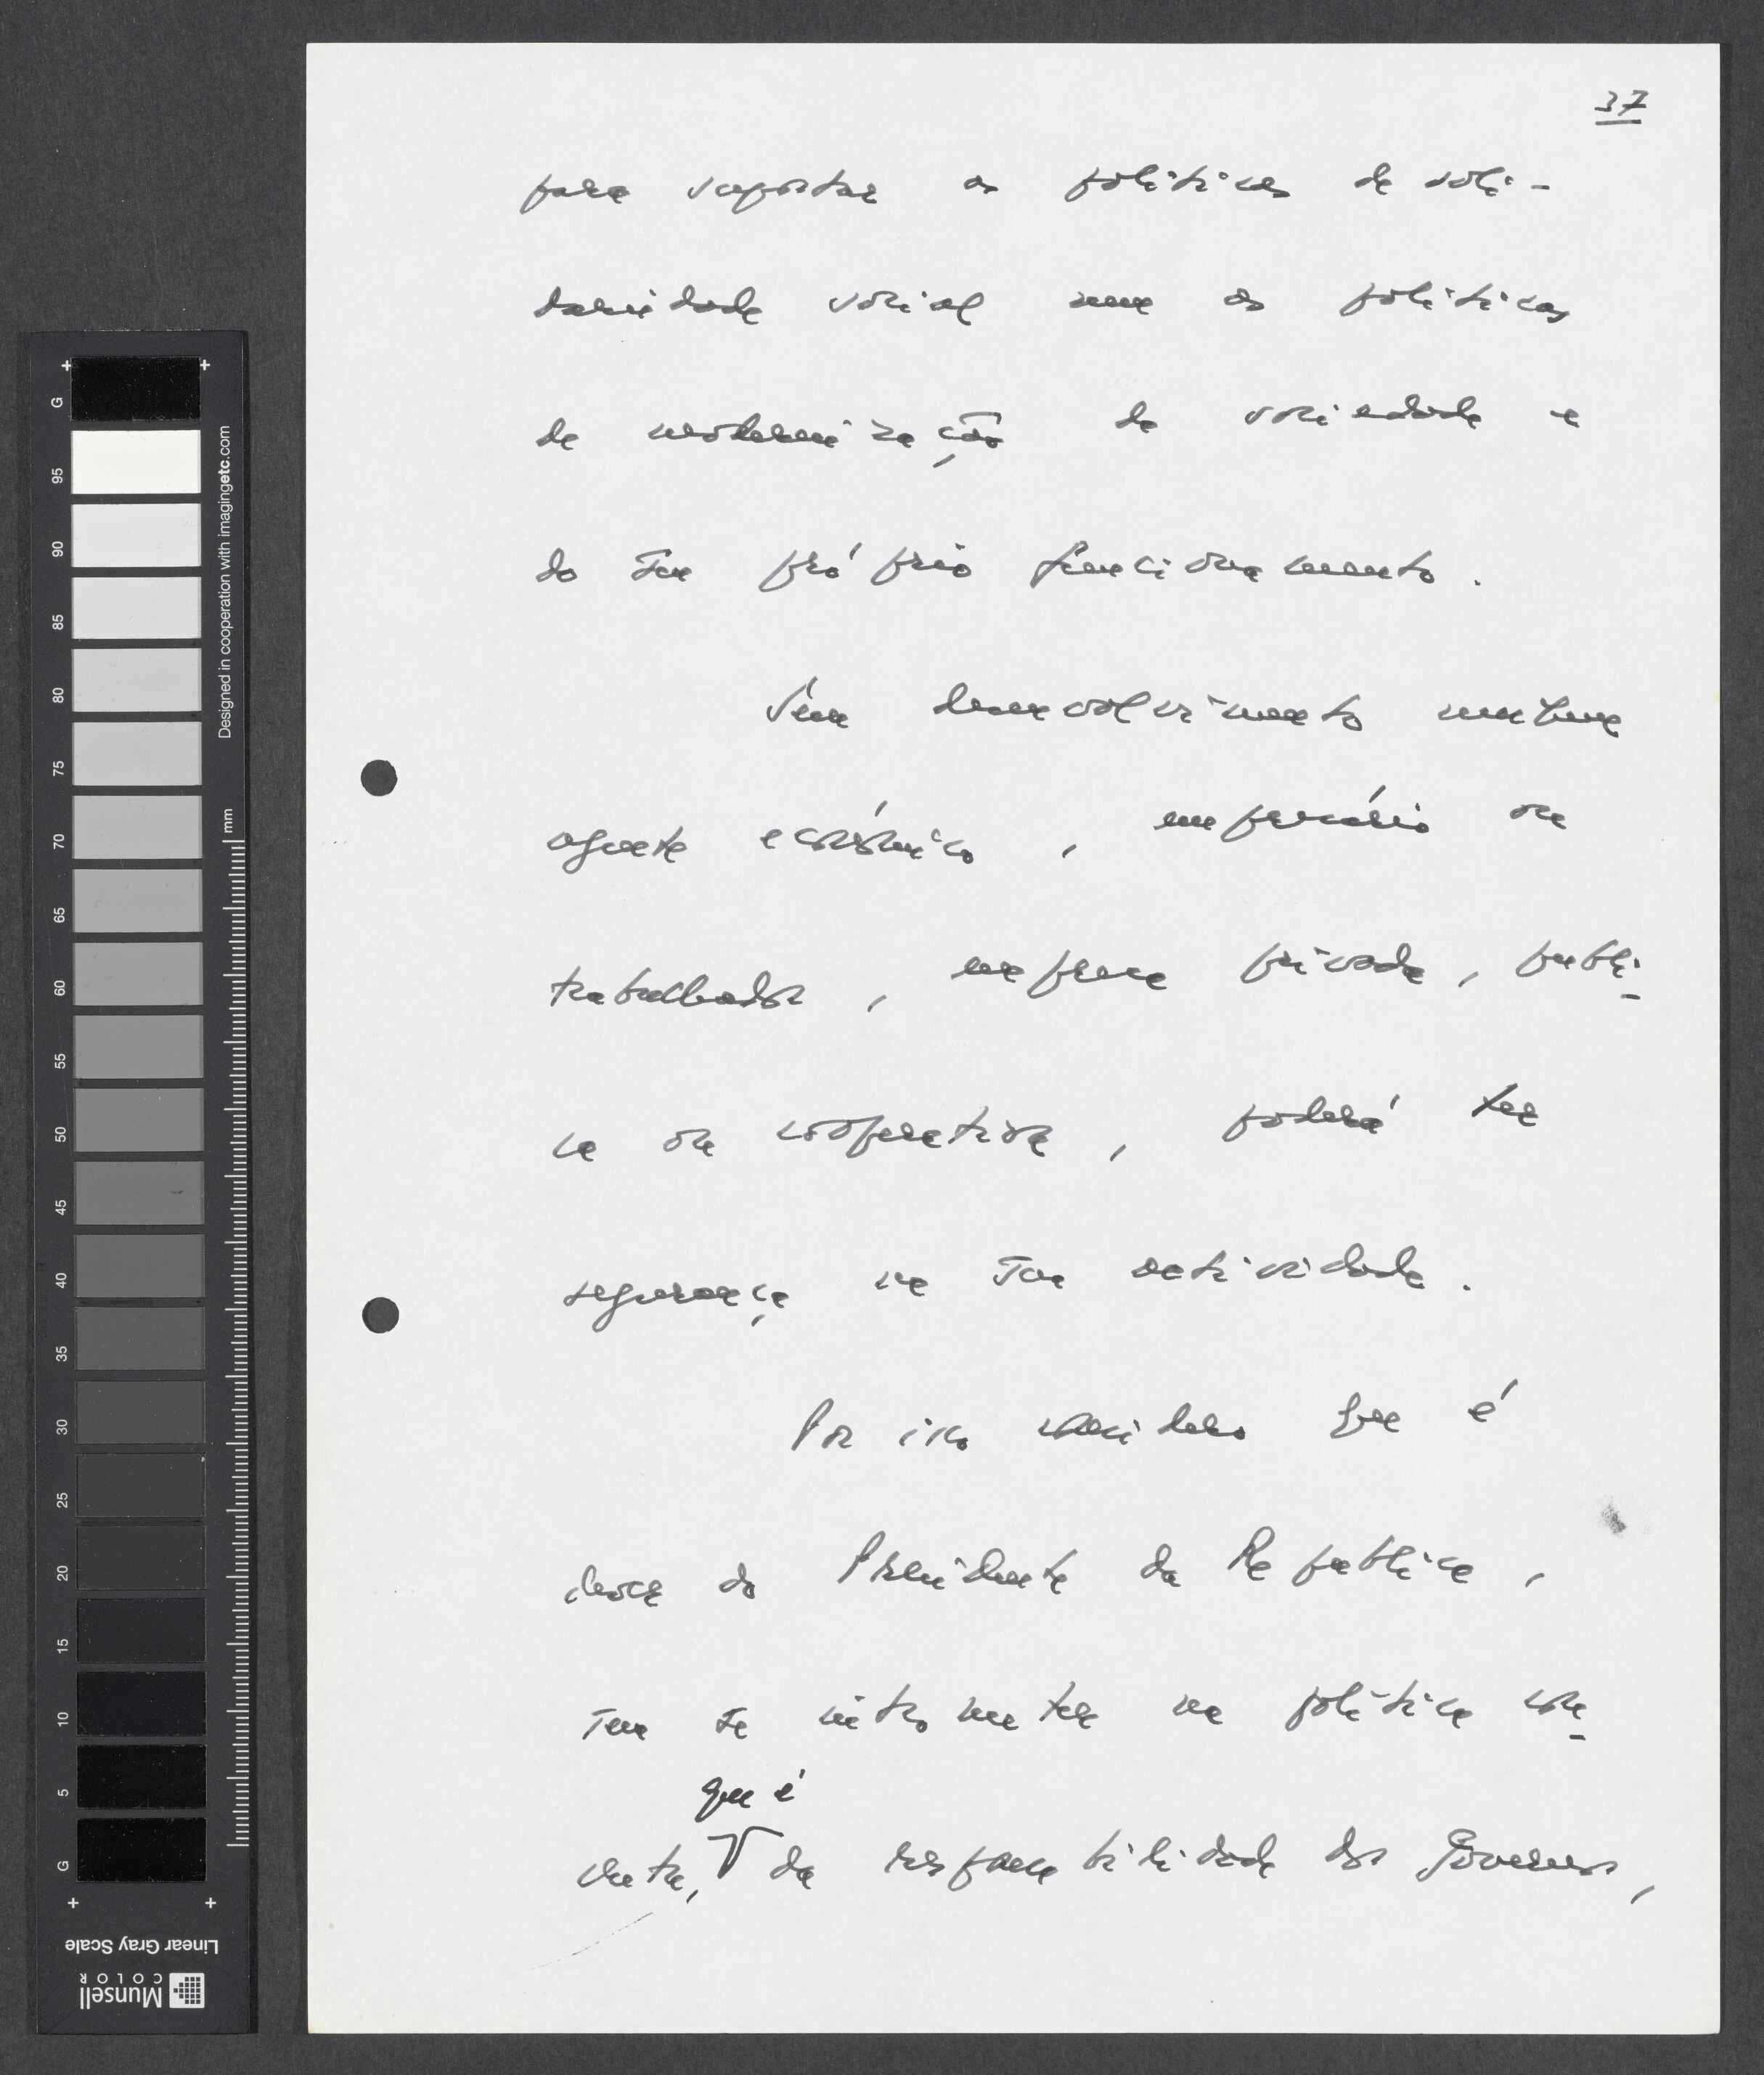 37
para suportar as políticas de soli-
dariedade social nem as políticas
de modernização da sociedade e
do seu próprio funcionamento.
Sem desenvolvimento nenhum
agente económico, empresário ou
trabalhador, empresa privada, públi-
ca ou cooperativa, poderá ter
segurança na sua actividade.
Por isso considero que é
dever do Presidente da República,
sem se intrometer na política con-
creta, que é da responsabilidade dos Governos,
G
95
90
85
80
75
70
65
60
55
50
45
40
35
30
25
20
15
10
5
G
Designed in cooperation with imagingetc.com
mm
Linear Gray Scale
Munsell
COLOR